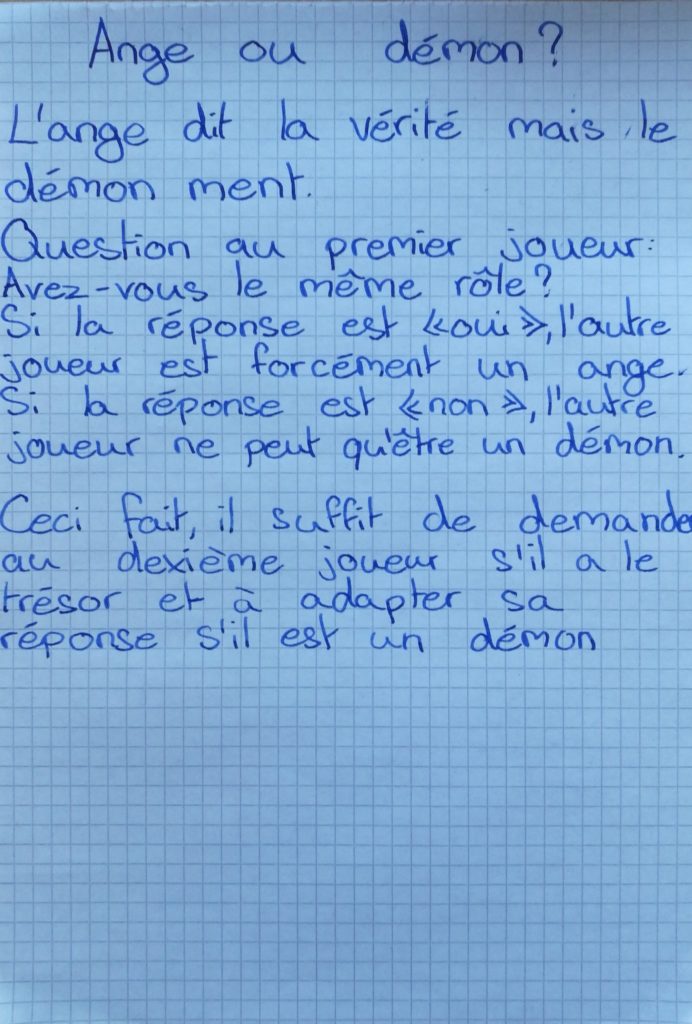 Ange ou démon?
L'ange dit la vérité mais le
démon ment.
Question au premier joueur:
Avez-vous le même rôle?
Si la réponse est «oui», l'autre
joueur est forcément un ange.
Si la réponse est «non», l'autre
joueur ne peut qu'être un démon.
Ceci fait, il suffit de demande
au dexième joueur s'il a le
trésor et à adapter sa
réponse s'il est un démon